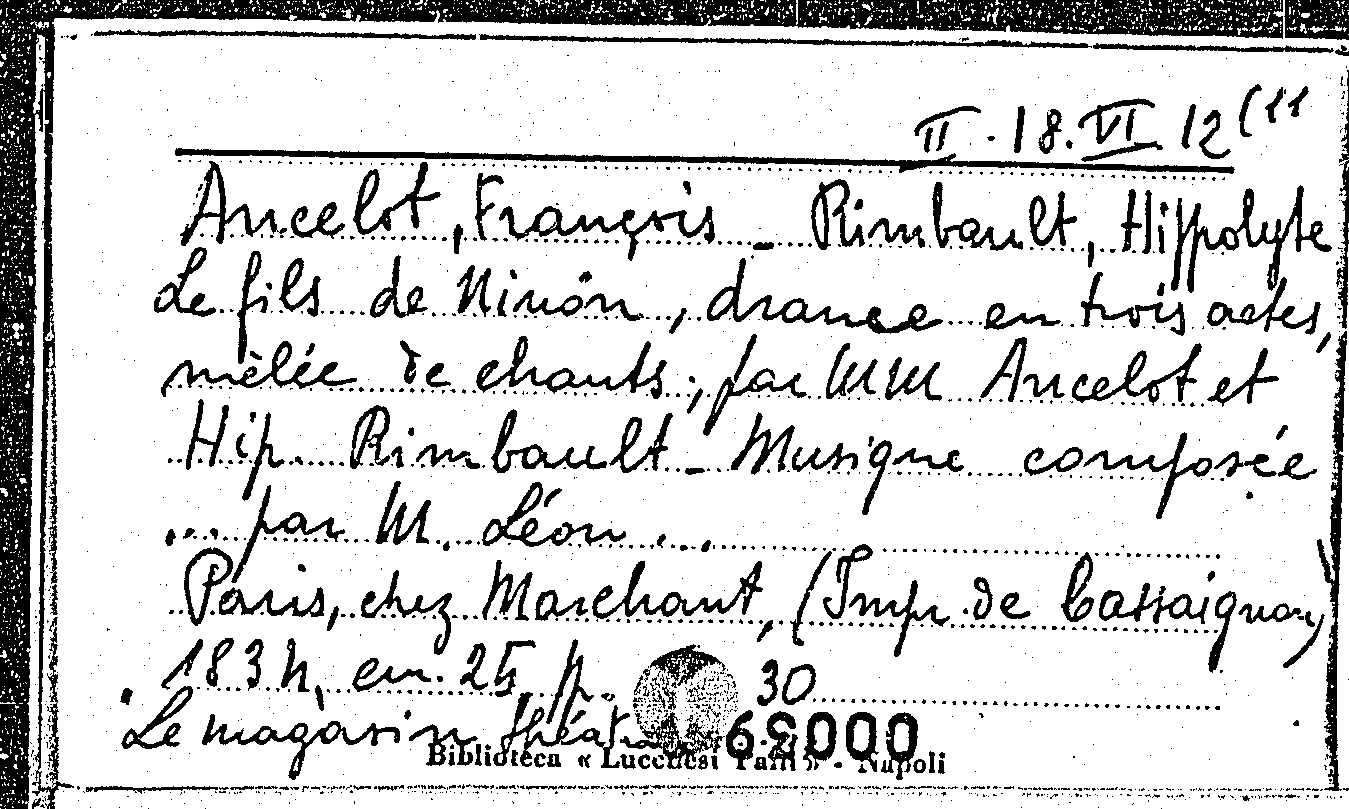 II . 18. VI 12 (11
Ancelot, François - Rimbault, Hippolyte
Le fils de Ninon, drame en trois actes,
mêlée de chants; par MM Ancelot et
Hip. Rimbault - Musique composée
... par M. Léon ...
Paris, chez Marchant, (Impr. de Cassaignon)
183 , em. 25 p. 30
Le magasin
62000
Biblioteca « Lucchesi Palli » - Napoli